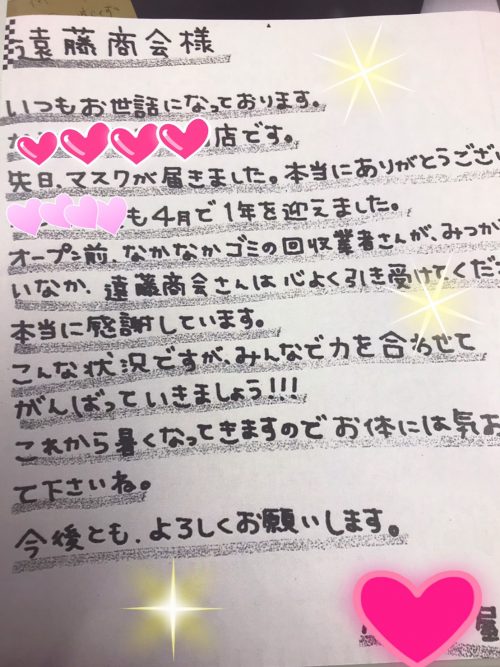 遠藤商会様
いつもお世話になっております。
店です。
先日、マスクが届きました。本当にありがとうござい
も4月で1年を迎えました。
オープン前、なかなかゴミの回収業者さんが、みつか
いなか、遠藤商会さんは心よく引き受けてくだ
本当に感謝しています。
こんな状況ですが、みんなで力を合わせて
がんばっていきましょう!!!
これから暑くなってきますのでお体には気お
て下さいね。
今後とも、よろしくお願いします。
屋